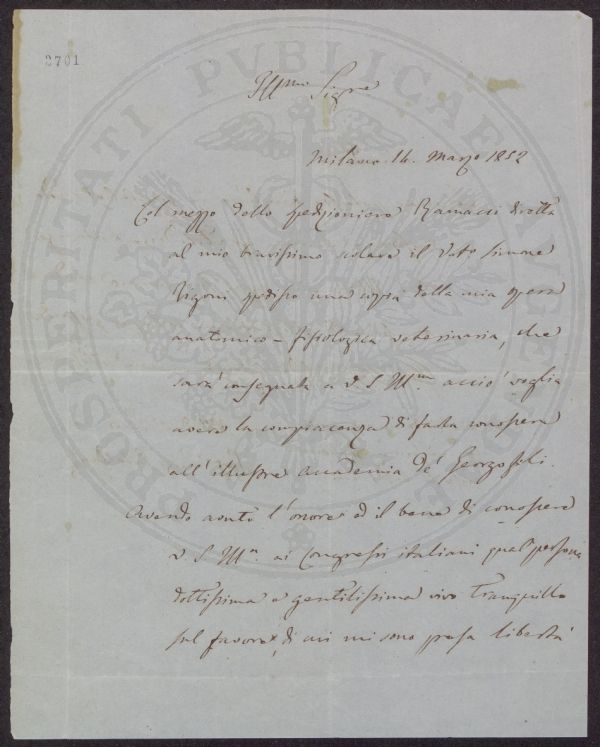 2701
PROSPERITATI PUBLICAE AUGENDAE
Ill.mo Signore
Milano 14. Marzo 1852
Col mezzo dello spedizioniere diretta
al mio bravissimo scolare il Vet.o Simone
Vigoni spedisco una copia della mia opera
anatomico-fisiologica veterinaria, che
sarà consegnata a V. S. Ill.ma acciò voglia
avere la compiacenza di farla conoscere
all'illustre Accademia de' Georgofili.
Avendo avuto l'onore ed il bene di conoscere
V. S. Ill.ma ai Congressi italiani qual persona
dottissima e gentilissima vivo tranquillo
sul favore, di cui mi sono presa libertà